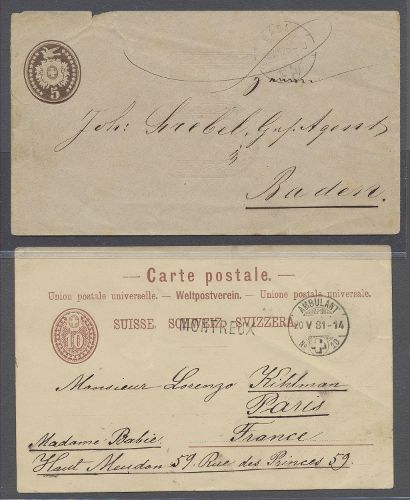 5
Joh. Sriebel, Gesch. Agent
Baden.
— Carte postale. —
Union postale universelle. — Weltpostverein. — Unione postale universale.
SUISSE. SCHWEIZ. SVIZZERA.
MONTREUX
10
AMBULANT
20 V 81-14
No 20
Monsieur Lorenzo Kihlman
Paris
France
Madame Babié
Haut Meudon 59. Rue des Princes 59.